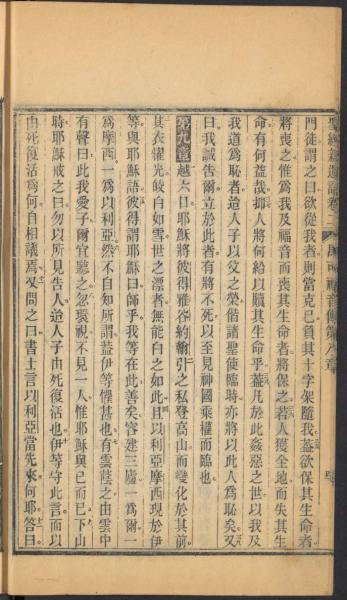 聖經新遺詔卷二 馬可福音傳第八章
門徒謂之曰欲從我者則當克己負其十字架隨我蓋欲保其生命者
將喪之惟爲我及福音而喪其生命者將保之若人獲全地而失其生
命有何益哉抑人將何給以贖其生命乎蓋凡於此姦惡之世以我及
我道爲恥者迨人子以父之榮偕諸聖使臨時亦將以此人爲恥矣又
曰我誠告爾立於此者有將不死以至見神國乘權而臨也
第九章越六日耶穌將彼得雅各約翰引之私登高山而變化於其前
其衣燿光皎白如雪世之漂者無能白之如此且以利亞摩西現於伊
等與耶穌語彼得謂耶穌曰師乎我等在此善矣容建三廬一爲爾一
爲摩西一爲以利亞然不自知所謂蓋伊等懼甚也有雲蔭之由雲中
有聲曰此我愛子爾宜聽之忽環視不見一人惟耶穌與己而已下山
時耶穌戒之曰勿以所見告人迨人子由死復活也伊等守此言而以
由死復活爲何自相議焉又問之曰書士言以利亞當先來何耶答曰